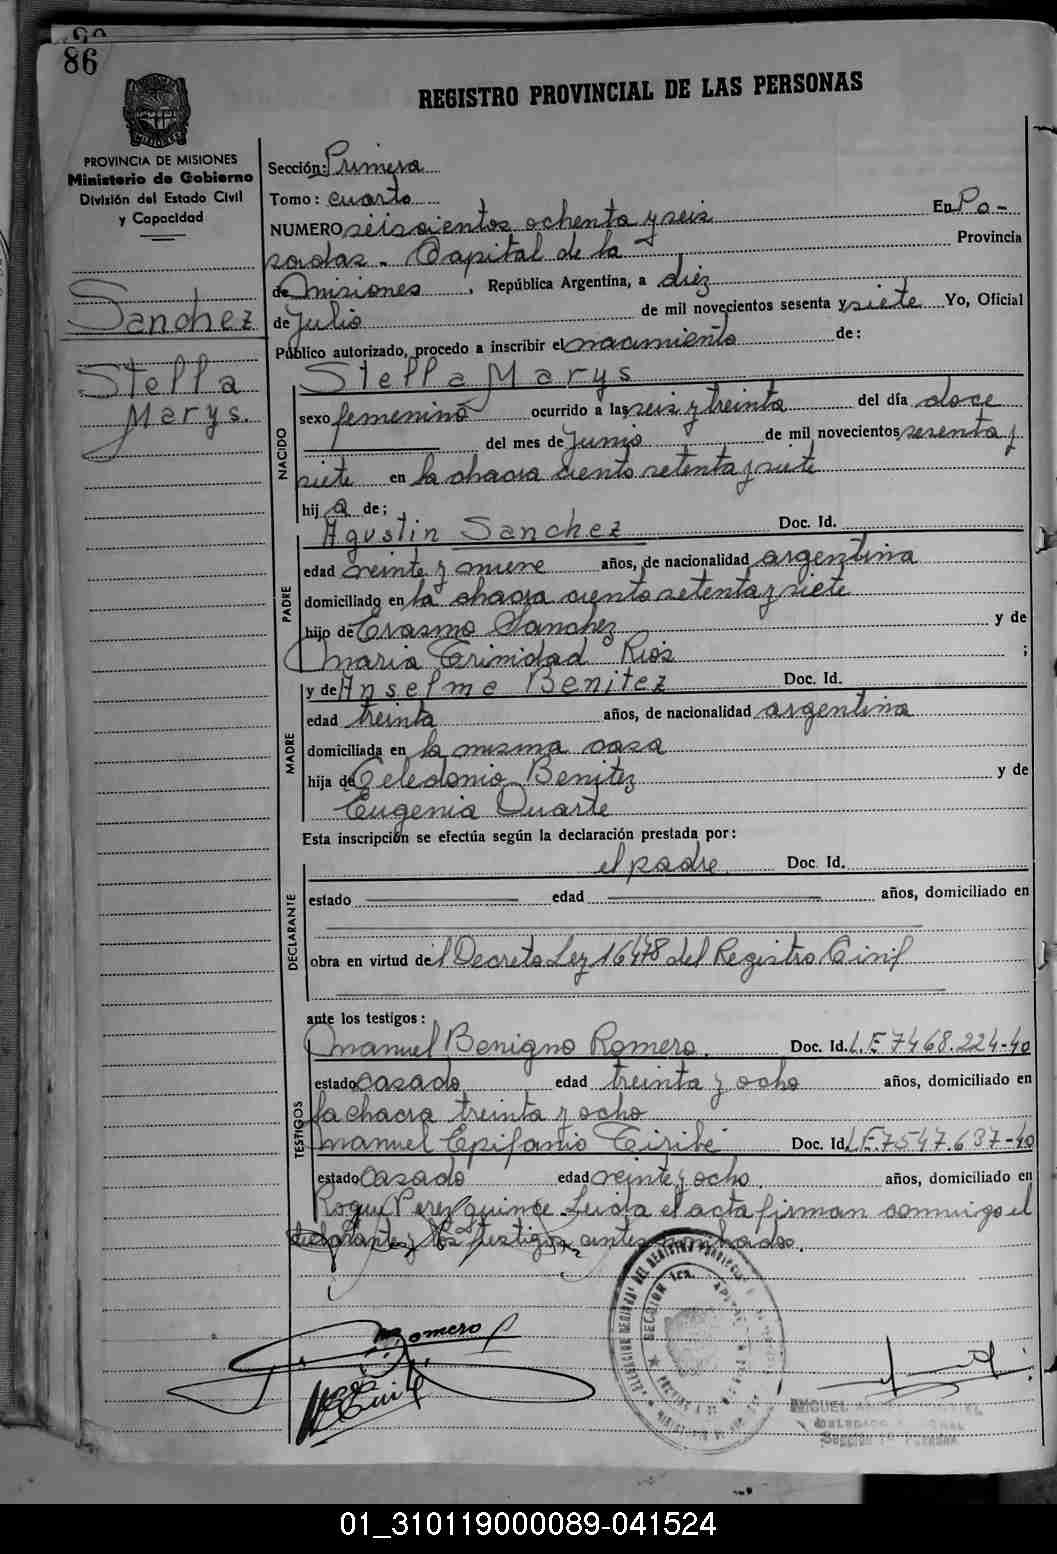 86
REGISTRO PROVINCIAL DE LAS PERSONAS
PROVINCIA DE MISIONES
Ministerio de Gobierno
División del Estado Civil
y Capacidad
Sanchez
Stella
Marys.
Sección: Primera
Tomo: cuarto
NUMERO seiscientos ochenta y seis En Po-
sadas - Capital de la Provincia
de Misiones, República Argentina, a diez
de Julio de mil novecientos sesenta y siete Yo, Oficial
Público autorizado, procedo a inscribir el nacimiento de:
Stella Marys
NACIDO
sexo femenino ocurrido a las seis y treinta del día doce
del mes de Junio de mil novecientos sesenta y
siete en la chacra ciento setenta y siete
hij a de;
Agustin Sanchez Doc. Id.
PADRE
edad veinte y nueve años, de nacionalidad argentina
domiciliado en la chacra ciento setenta y siete
hijo de Erasmo Sanchez y de
Maria Trinidad Rios ;
y de Anselma Benitez Doc. Id.
MADRE
edad treinta años, de nacionalidad argentina
domiciliada en la misma casa
hija de Celedonio Benitez y de
Eugenia Duarte
Esta inscripción se efectúa según la declaración prestada por:
el padre. Doc. Id.
DECLARANTE
estado edad años, domiciliado en
obra en virtud del Decreto Ley 16478 del Registro Civil
ante los testigos:
Manuel Benigno Romero. Doc. Id. L.E 7468.224-40
TESTIGOS
estado casado edad treinta y ocho años, domiciliado en
la chacra treinta y ocho
Manuel Epifanio Tiribé Doc. Id. L.E.7547.637-40
estado casado edad veinte y ocho. años, domiciliado en
Roque Perez quince. Leida el acta firman conmigo el
declarante y los testigos antes nombrado.
Romero
SECCION 1ra.
01_310119000089-041524